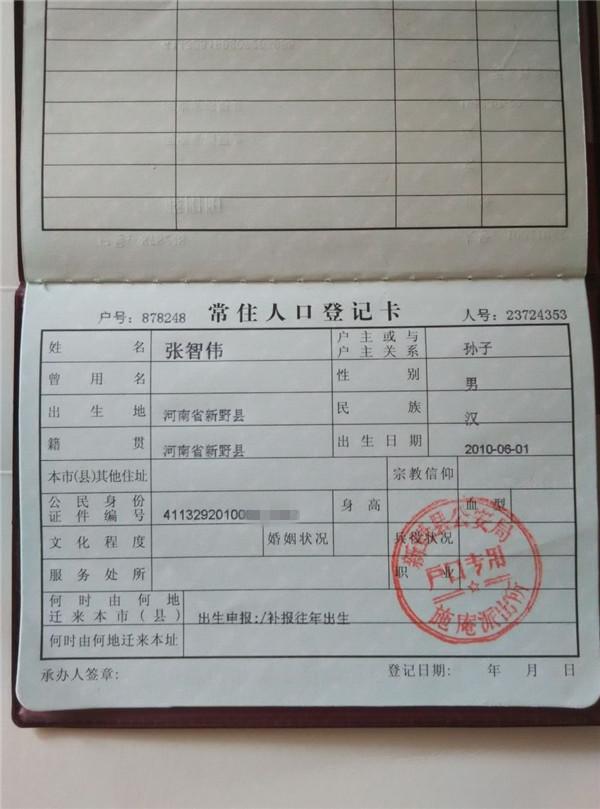 户号: 878248 常住人口登记卡 人号: 23724353
姓名 张智伟 户主或与户主关系 孙子
曾用名 性别 男
出生地 河南省新野县 民族 汉
籍贯 河南省新野县 出生日期 2010-06-01
本市(县)其他住址 宗教信仰
公民身份证件编号 41132920100 身高 血型
文化程度 婚姻状况 兵役状况
服务处所 职业
何时由何地迁来本市(县) 出生申报:/补报往年出生
何时由何地迁来本址
承办人签章: 登记日期: 年 月 日
新野县公安局
户口专用
施庵派出所